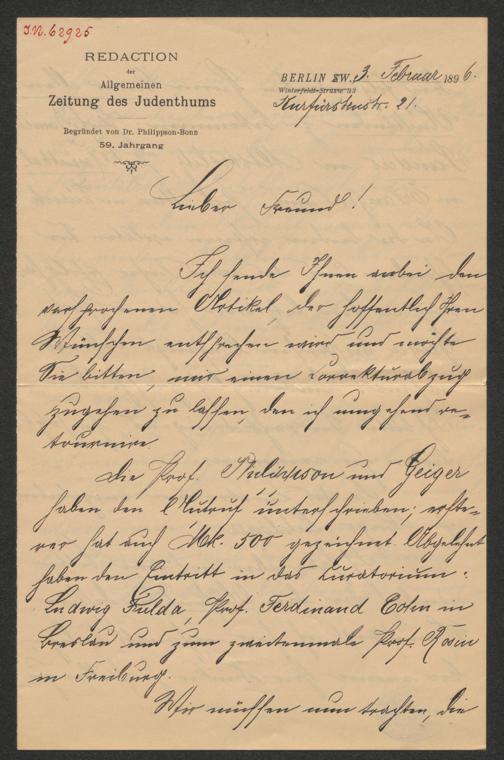 I.N. 62925
REDACTION
der
Allgemeinen
Zeitung des Judenthums
Begründet von Dr. Philippson-Bonn
59. Jahrgang
BERLIN SW., 3. Februar 1896.
Winterfeldt-Strasse
Kurfürstenstr. 21.
Lieber Freund!
Ich sende Ihnen anbei den
versprochenen Artikel, der hoffentlich Ihren
Wünschen entsprechen wird und möchte
Sie bitten, mir einen Correkturabzug
zugehen zu lassen, den ich umgehend re-
tournire.
Die Prof. Philippson und Geiger
haben den Aufruf unterschrieben; erste-
rer hat auch Mk. 500 gezeichnet. Abgelehnt
haben den Eintritt in das Curatorium:
Ludwig Fulda, Prof. Ferdinand Cohn in
Breslau und zum zweitenmale Prof. Rosin
in Freiburg.
Wir müssen nun trachten, die